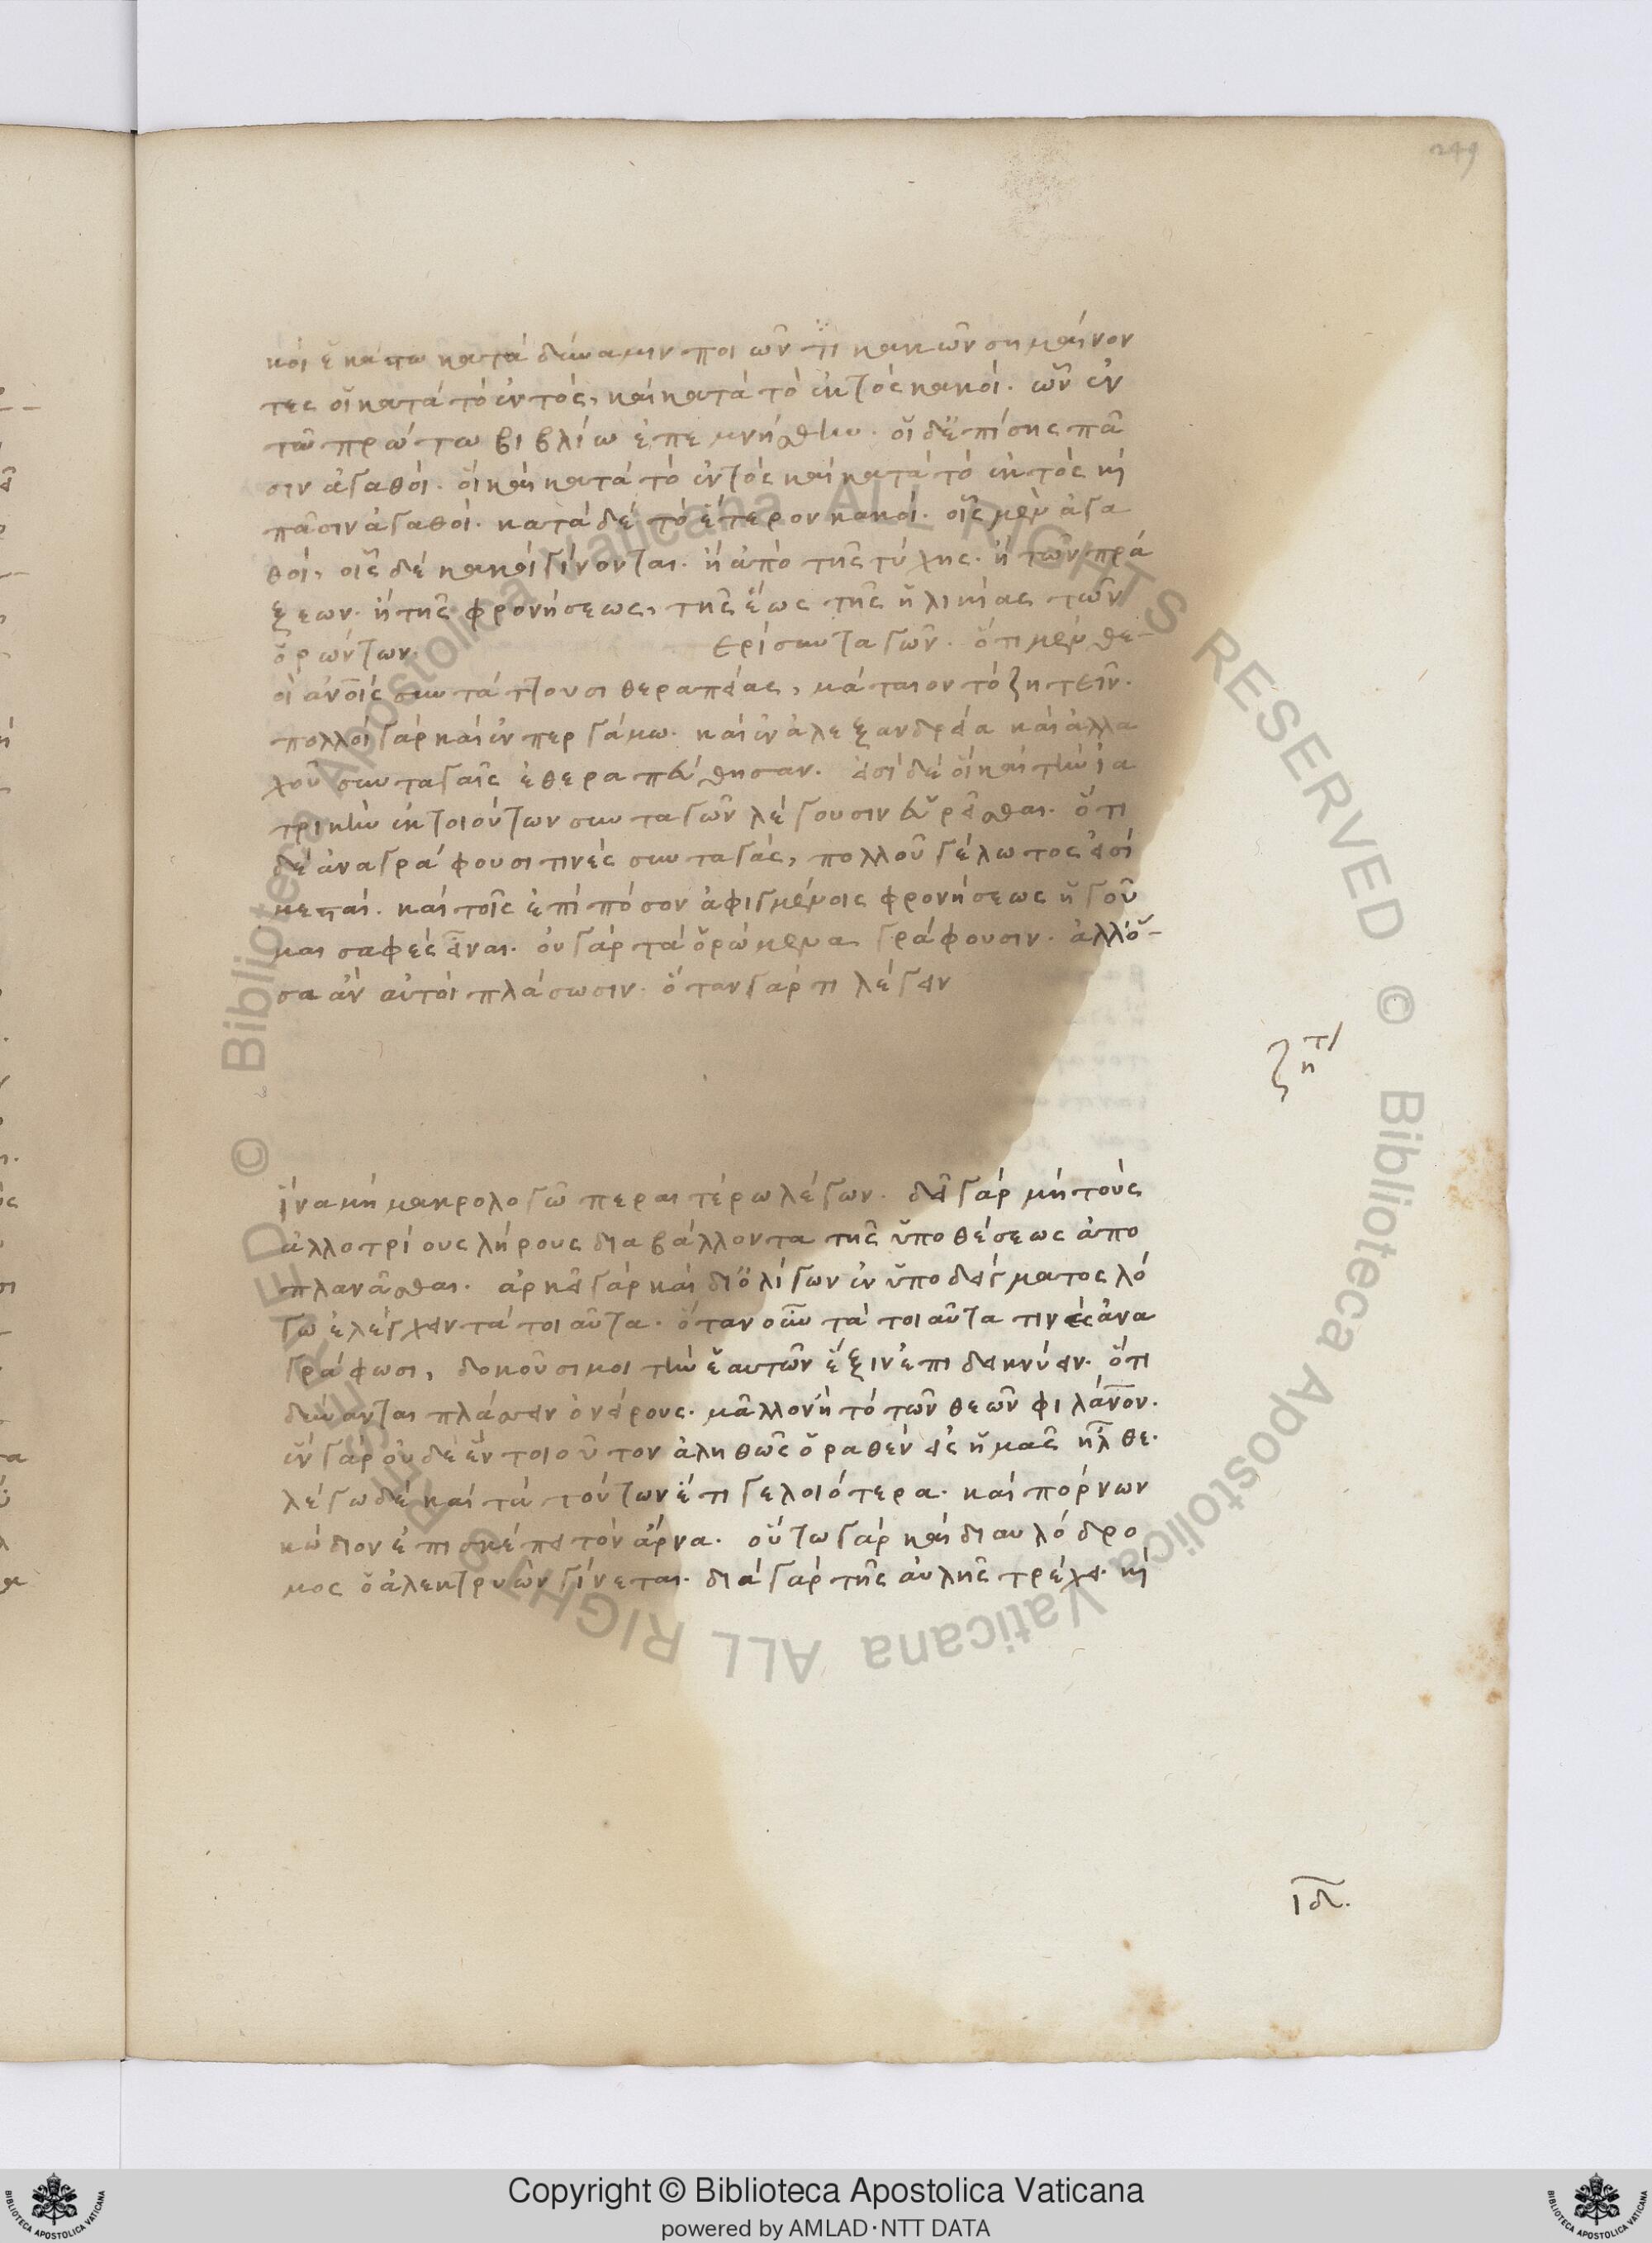 249
κοὶ ἑκάστω κατὰ δύναμιν ποιῶν τι κακῶν σημαίνον
τες οἱ κατὰ τὸ ἐντός, καὶ κατὰ τὸ ἐκτὸς κακοί. ὧν ἐν
τῶ πρώτω βιβλίω ἐπεμνήσθην. οἱ δ' ἐπίσης πᾶ
σιν ἀγαθοί. οἱ καὶ κατὰ τὸ ἐντὸς καὶ κατὰ τὸ ἐκτὸς κὴ
πᾶσιν ἀγαθοί. κατὰ δὲ τὸ ἕτερον κακοί. οἷς μὲν ἀγα
θοί, οἷς δὲ κακοὶ γίνονται. ἢ ἀπὸ τῆς τύχης. ἢ τῶν πρά
ξεων. ἢ τῆς φρονήσεως, τῆς ἕως τῆς ἡλικίας τῶν
ὁρώντων. ερὶ συνταγῶν. ὅτι μὲν θε-
οὶ ἀνοῖς συντάττουσι θεραπείας, μάταιον τὸ ζητεῖν.
πολλοὶ γὰρ καὶ ἐν περγάμω. καὶ ἐν ἀλεξανδρεία καὶ ἀλλα
χοῦ συνταγαῖς ἐθεραπεύθησαν. εἰσὶ δὲ οἳ καὶ τὴν ἰα
τρικὴν ἐκ τοιούτων συνταγῶν λέγουσιν εὑρεῖσθαι. ὅτι
δὲ ἀναγράφουσι τινὲς συνταγάς, πολλοῦ γέλωτος εἰσὶ
μεσταί. καὶ τοῖς ἐπὶ πόσον ἀφιγμένοις φρονήσεως ἡγοῦ
μαι σαφὲς εἶναι. οὐ γὰρ τὰ ὁρώμενα γράφουσιν. ἀλλ' ὅ-
σα ἂν αὐτοὶ πλάσωσιν. ὅταν γάρ τι λέγειν
ζητ
ἵνα μὴ μακρολογῶ περαιτέρω λέγων. δεῖ γὰρ μὴ τοὺς
ἀλλοτρίους λήρους διαβάλλοντα τῆς ὑποθέσεως ἀπο
πλανᾶσθαι. ἀρκεῖ γὰρ καὶ δι' ὀλίγων ἐν ὑποδείγματος λό
γω ἐλέγχειν τὰ τοιαῦτα. ὅταν οὖν τὰ τοιαῦτα τινὲς ἀνα
γράφωσι, δοκοῦσι μοι τὴν ἑαυτῶν ἕξιν ἐπιδεικνύειν. ὅτι
δύνανται πλάσσειν ὀνείρους. μᾶλλον ἢ τὸ τῶν θεῶν φιλάνον.
ἓν γὰρ οὐδὲ ἓν τοιοῦτον ἀληθῶς ὁραθὲν εἰς ἡμᾶς ἦλθε.
λέγω δὲ καὶ τὰ τούτων ἔτι γελοιότερα. καὶ πόρνων
κώδιον ἐπισκέπει τὸν ἄρνα. οὕτω γὰρ καὶ διαυλόδρο
μος ὁ ἀλεκτρυὼν γίνεται. διὰ γὰρ τῆς αὐλῆς τρέχει. κὴ
ιδ.
© Biblioteca Apostolica Vaticana ALL RIGHTS RESERVED © Biblioteca Apostolica Vaticana ALL RIGHTS RESERVED
Copyright © Biblioteca Apostolica Vaticana
powered by AMLAD·NTT DATA